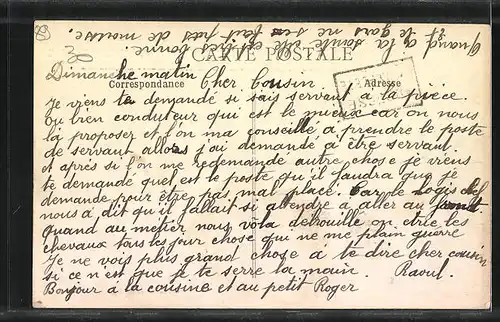 Quand à la santé elle est très bonne
et le gars ne se fait pas de mousse.
CARTE POSTALE
Correspondance
Adresse
Dimanche matin Cher Cousin.
Je viens te demandé si sais servant à la pièce.
ou bien conduteur qui est le mieux car on nous
la proposez et l'on ma conseillé a prendre le poste
de servant allors j'ai demandé a être servant.
et après si l'on me redemande autre chose je viens
te demandé quel est le poste qu'il faudra que je
demande pour être pas mal placé. Car le logis chef
nous à dit qu'il fallait si attendre a aller au front.
quand au métier nous vola débrouillé on étrie les
chevaux tous les jour chose qui ne me plain guerre
Je ne vois plus grand chose a te dire cher cousin
si ce n'est que je te serre la main. Raoul.
Bonjour à la cousine et au petit Roger